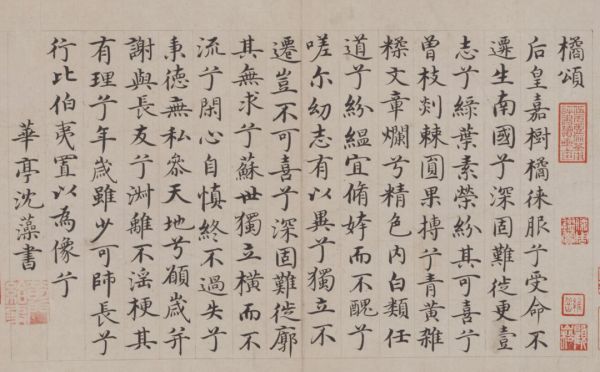 橘頌
后皇嘉樹橘徠服兮受命不
遷生南國兮深固難徙更壹
志兮綠葉素榮紛其可喜兮
曾枝剡棘圓果摶兮青黃雜
糅文章爛兮精色內白類任
道兮紛縕宜脩姱而不醜兮
嗟尔幼志有以異兮獨立不
遷豈不可喜兮深固難徙廓
其無求兮蘇世獨立橫而不
流兮閑心自慎終不過失兮
秉德無私參天地兮願歲并
謝與長友兮淑離不淫梗其
有理兮年歲雖少可師長兮
行比伯夷置以為像兮
華亭沈藻書